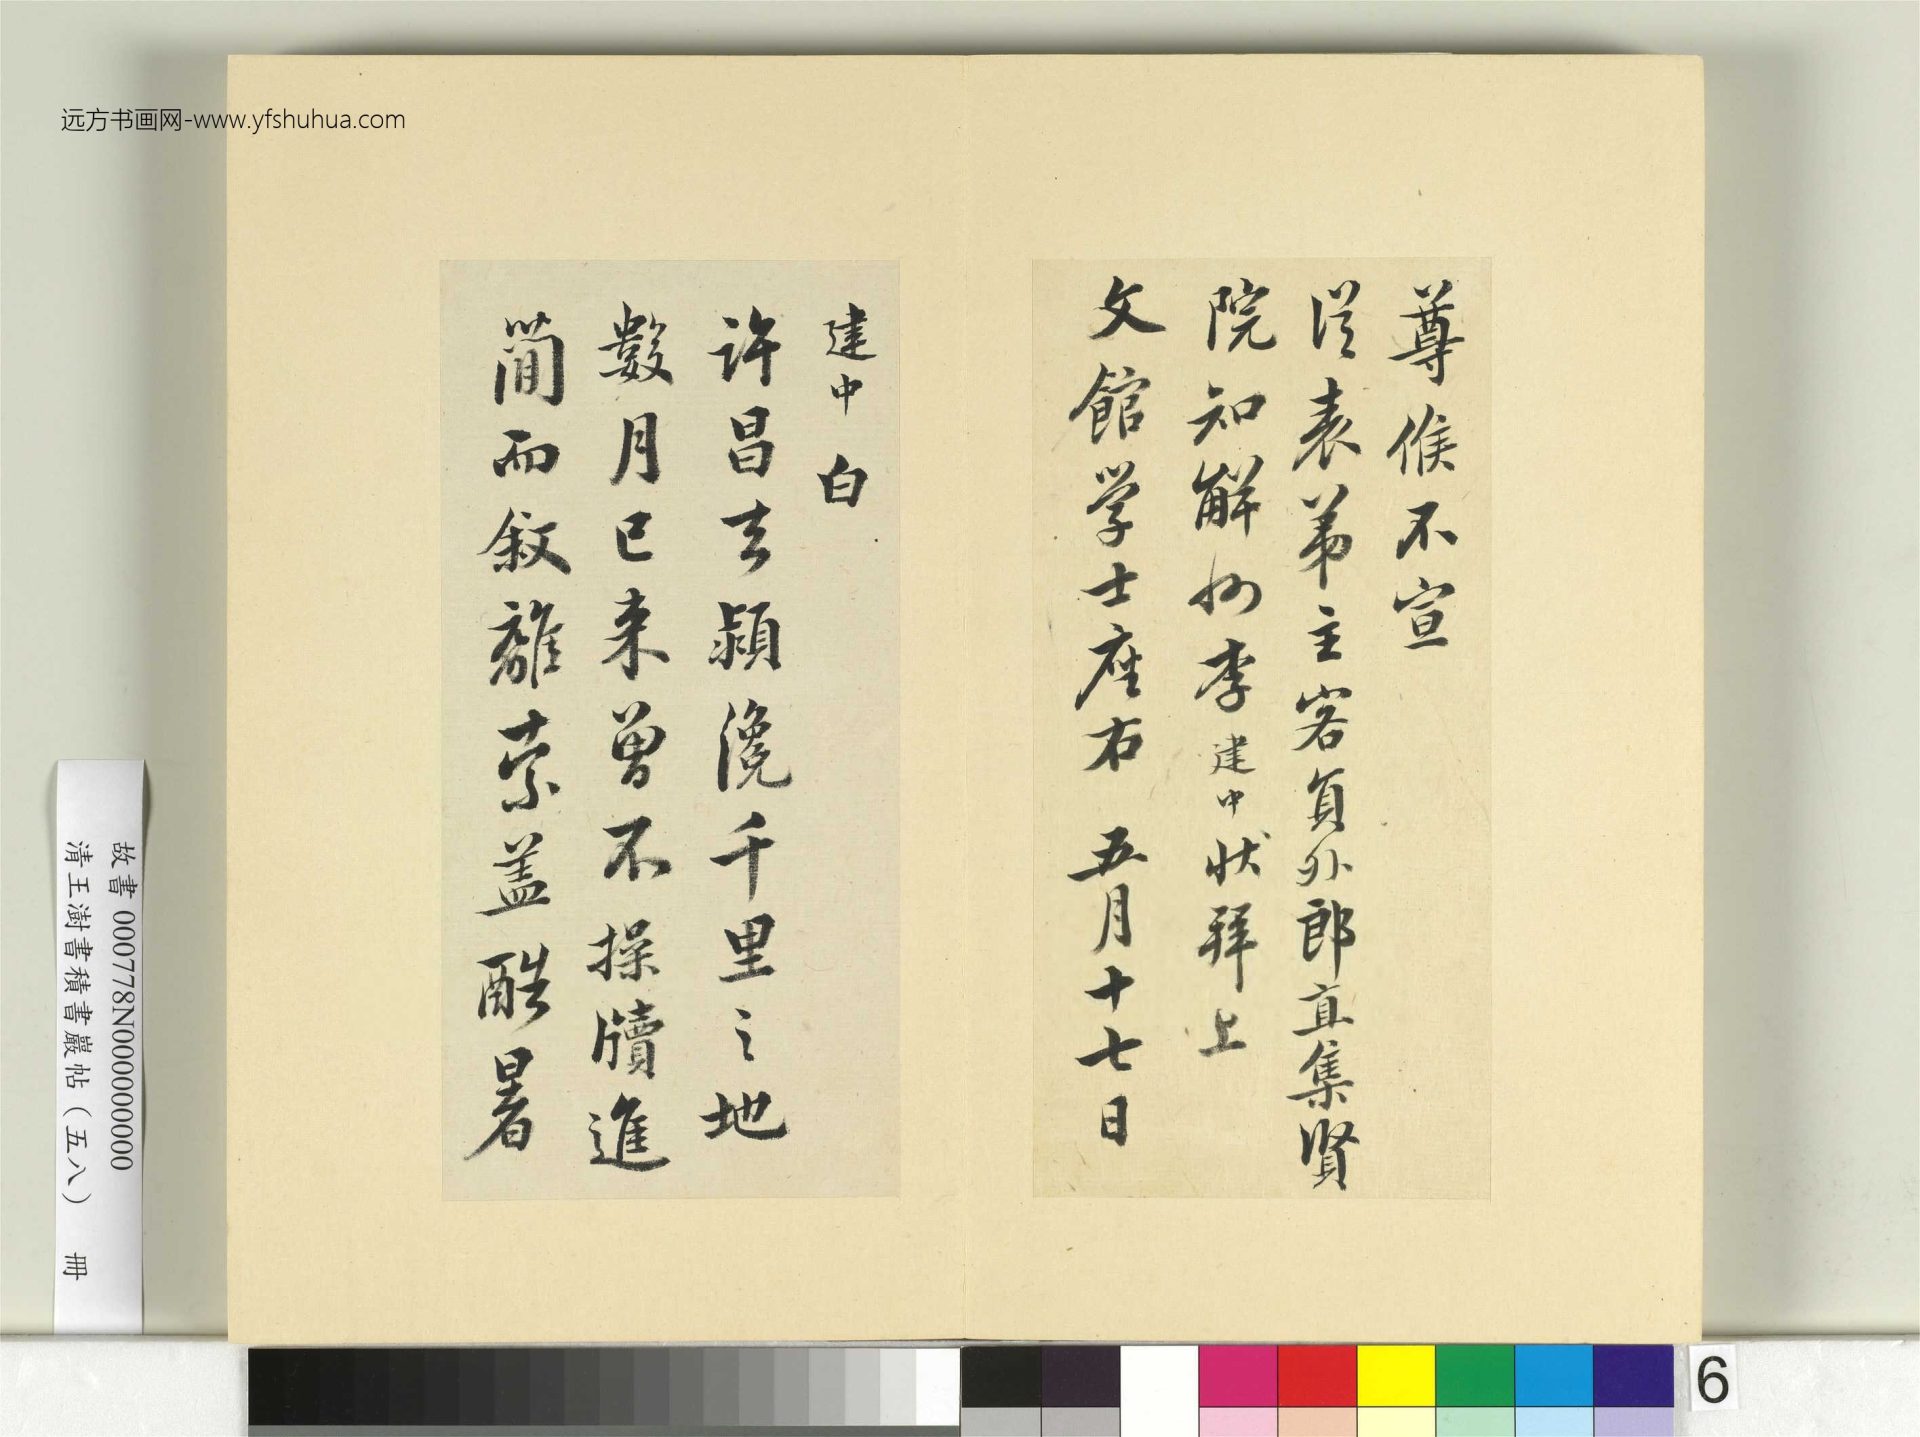 远方书画网-www.yfshuhua.com
尊候不宣
從表弟主客員外郎直集賢
院知解州李建中狀拜上
文館学士座右 五月十七日
建中白
許昌去潁浼千里之地
數月已来曾不操牘進
簡而敘離索盖酷暑
故書 000778N000000000
清王澍書積書巖帖(五八) 冊
6